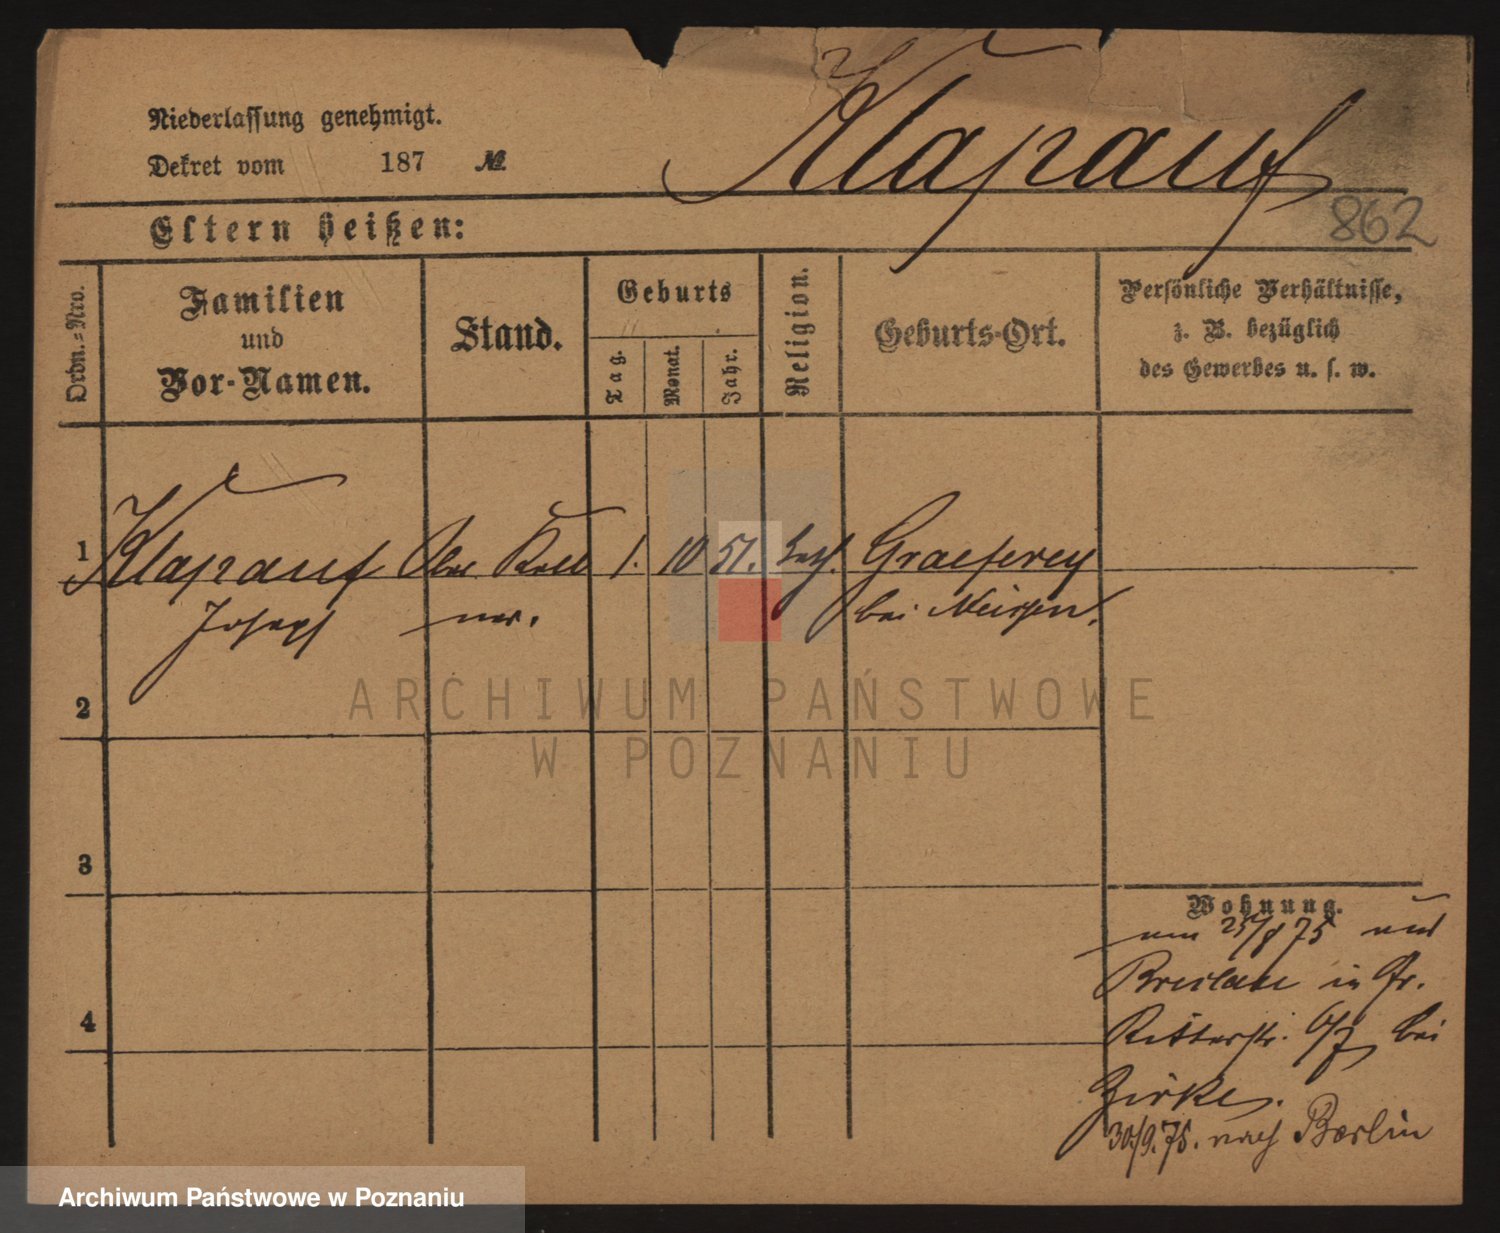 Klapauf
Niederlassung genehmigt.
Dekret vom 187 №
862
Eltern heißen:
Ordn.-Nro.
Familien
und
Vor-Namen.
Stand.
Geburts
Tag.
Monat.
Jahr.
Religion.
Geburts-Ort.
Persönliche Verhältnisse,
z. B. bezüglich
des Gewerbes u. s. w.
1 Klapauf Ober Kell 1. 10 51. kath. Graeferey
Joseph ner. bei
2
ARCHIWUM PAŃSTWOWE
W POZNANIU
3
Wohnung.
25/8 75
Breslau in Gr.
Ritterstr. 6/7 bei
Zirke.
30/9.75. nach Berlin
4
Archiwum Państwowe w Poznaniu